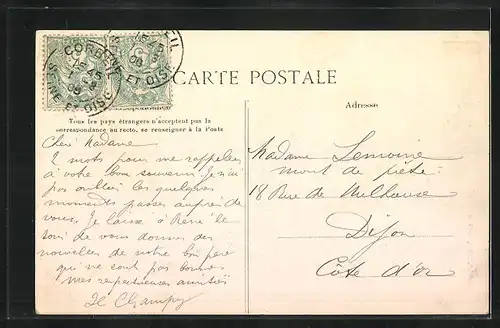 CORBEIL
SEINE ET OISE
CARTE POSTALE
Tous les pays étrangers n'acceptent pas la
correspondance au recto, se renseigner à la Poste
Adresse
Chère Madame
2 mots pour me rappeler
à votre bon souvenir. Je n'ai
pas oublier les quelques
moments passés auprès de
vous. Je laisse à René le
soin de vous donner des
nouvelles de notre bon père
qui ne sont pas bonnes
Mes respectueuses amitiés
Champy
Madame Lemoine
mont de piété
18 Rue de Mulhouse
Dijon
Côte d'or